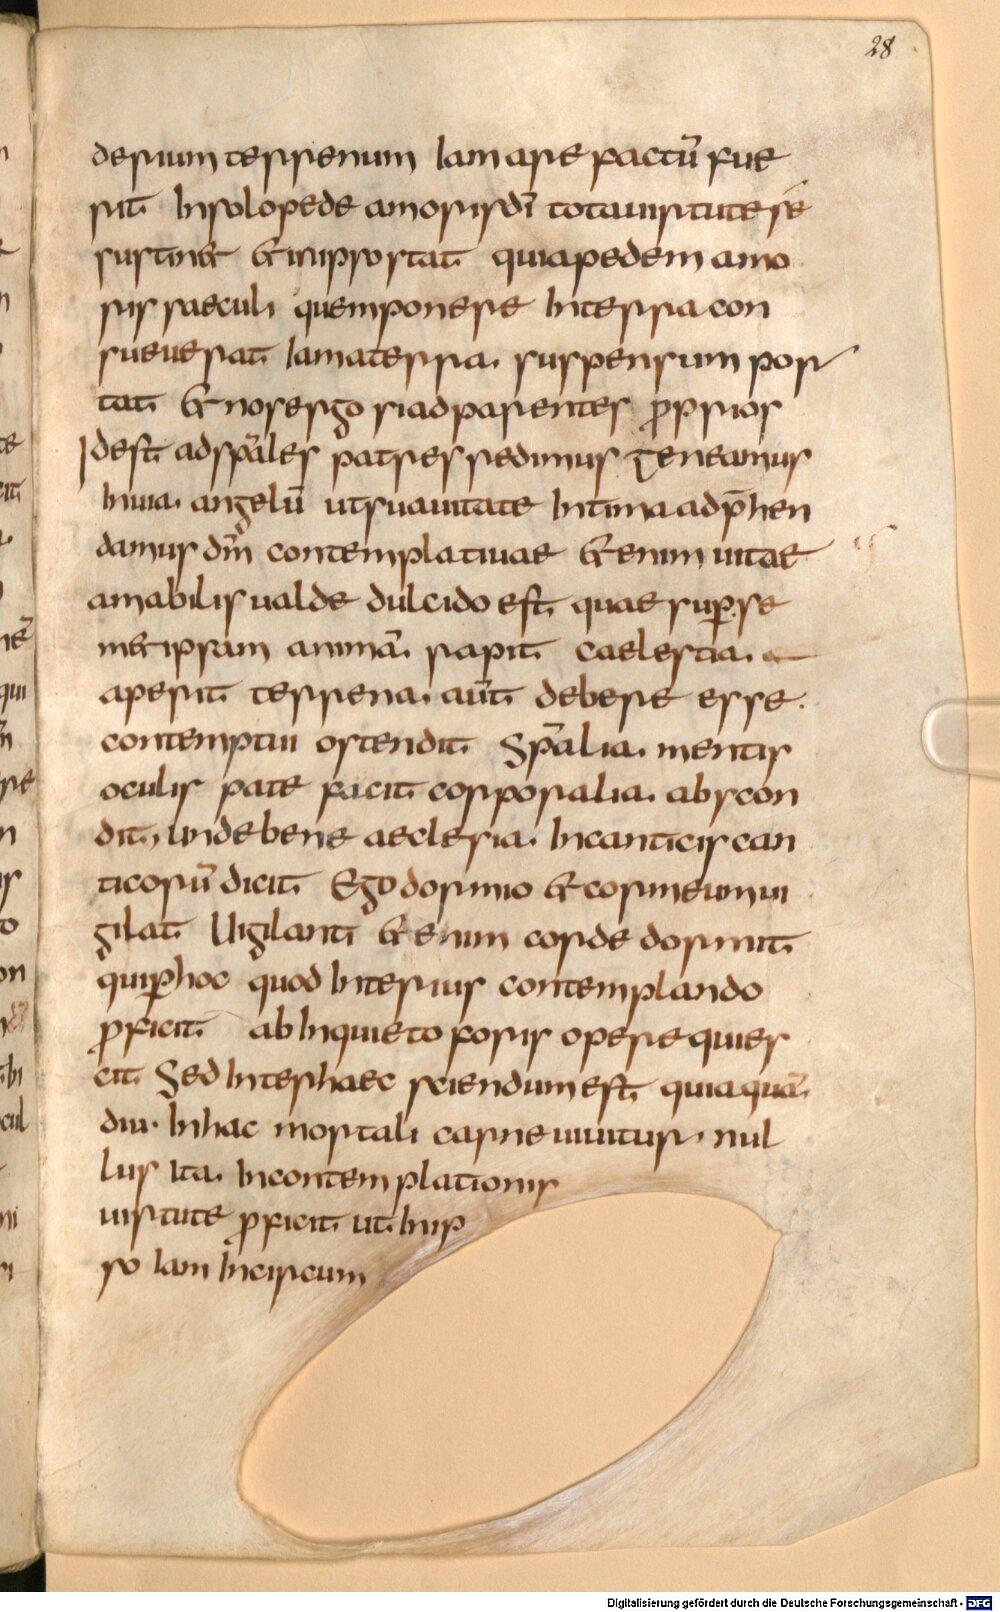 28
derium terrenum Iam arefactū fue
rit In solo pede amoris dī tota uirtute sē
sustin& & in ipso stat quia pedem amo
ris saeculi quem ponere In terra con
sueuerat Iam a terra suspensum por
tat & nos ergo si ad parentes ꝓprios
Id est ad spāles patres redimus Teneamus
In uia angelū ut suauitate Intima adp̄hen
damus dn̄m contemplatiuae &enim uitae
amabilis ualde dulcido est quae suꝑ se
m&ipsam animā rapit caelestia
aperit terrena aūt debere esse
contemptui ostendit Spālia mentis
oculis pate facit corporalia abscon
dit unde bene aeclesia In canticis can
ticorū dicit Ego dormio & cor meum ui
gilat Uigilanti &enim corde dormit
qui ꝑ hoc quod Interius contemplando
ꝓficit ab Inquieto foris opere quies
cit Sed Inter haec sciendum est quia quā
diu In hac mortali carne uiuitur nul
lus Ita In contemplationis
uirtute ꝓficit ut In ip
so Iam Incircum
Digitalisierung gefördert durch die Deutsche Forschungsgemeinschaft - DFG